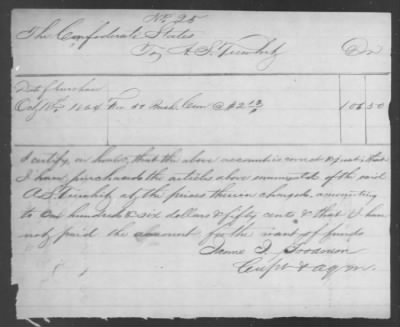 No 25
The Confederate States
To A. S. Dr
Date of purchase
Oct 18th 1864 For 50 Bush. Corn @ $2 13/ 106 50
I certify, on honor, that the above account is correct & just, that
I have purchased the articles above enumerated of the said
A S at the prices therein charged, amounting
to One hundred & six dollars & fifty cents & that I have
not paid the account for the want of funds
Capt & a q m.